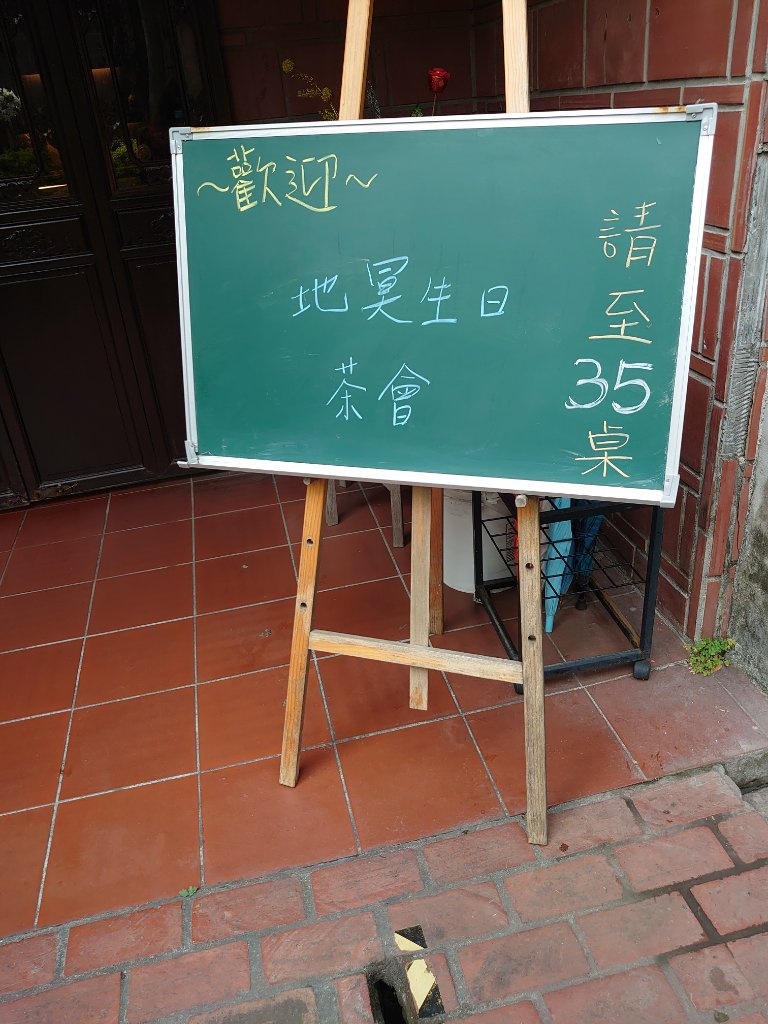 ~歡迎~
地冥生日
茶會
請至35桌